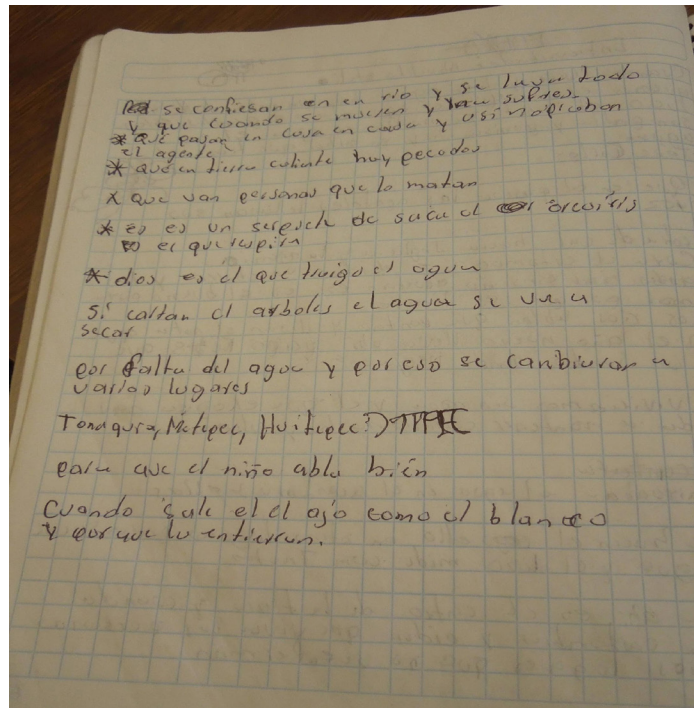 se confiesan en en rio y se lava todo
y que cuando se mueren y sufres.
* que pasan en casa en casa y asi nopicaban
el agente
* que en tierra caliente hay pecados
x que van personas que lo matan
* es es un serpiente de saca el arcoiris
es el
* dios es el que traiga el agua
si cartan el arboles el agua se va a
secar
por falta del agua y por eso se canbiaran a
varios lugares
Tonaguia, Metepec, Huitepec?)
para que el niño abla bien
Cuando sale el el ojo como el blanco
y por que lo entierran.